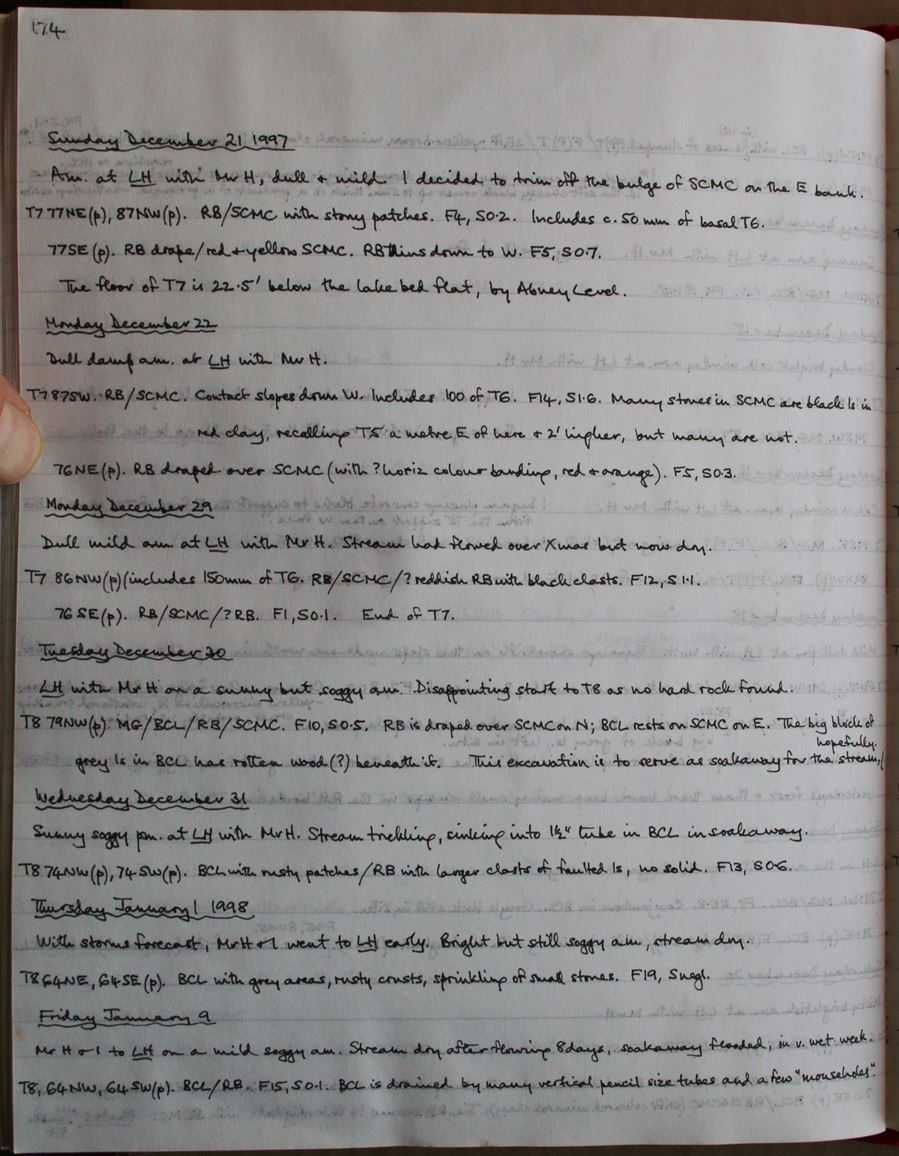 174
Sunday December 21, 1997
Am. at LH with Mr H, dull & mild. I decided to trim off the bulge of SCMC on the E bank.
T7 77NE(p), 87NW(p). RB/SCMC with stony patches. F4, S0.2. Includes c. 50 mm of basal T6.
77SE(p). RB drape/red & yellow SCMC. RB thins down to W. F5, S0.7.
The floor of T7 is 22.5' below the lake bed flat, by Abney Level.
Monday December 22
Dull damp am. at LH with Mr H.
T7 87SW. RB/SCMC. Contact slopes down W. Includes 100 of T6. F14, S1.6. Many stones in SCMC are black ls in
red clay, recalling T5 a metre E of here & 2' higher, but many are not.
76NE(p). RB draped over SCMC (with ?horiz colour banding, red & orange). F5, S0.3.
Monday December 29
Dull mild am at LH with Mr H. Stream had flowed over Xmas but now dry.
T7 86NW(p) (includes 150mm of T6. RB/SCMC/?reddish RB with black clasts. F12, S1.1.
76SE(p). RB/SCMC/?RB. F1, S0.1. End of T7.
Tuesday December 30
LH with Mr H on a sunny but soggy am. Disappointing start to T8 as no hard rock found.
T8 79NW(p) MG/BCL/RB/SCMC. F10, S0.5. RB is draped over SCMC on N; BCL rests on SCMC on E. The big block of
grey ls in BCL has rotten wood(?) beneath it. This excavation is to serve as soakaway for the stream, hopefully.
Wednesday December 31
Sunny soggy pm. at LH with Mr H. Stream trickling, sinking into 1½" tube in BCL in soakaway.
T8 74NW(p), 74SW(p). BCL with rusty patches/RB with larger clasts of faulted ls, no solid. F13, S0.6.
Thursday January 1 1998
With storms forecast, Mr H & I went to LH early. Bright but still soggy am., stream dry.
T8 64NE, 64SE(p). BCL with grey areas, rusty crusts, sprinkling of small stones. F19, Snegl.
Friday January 9
Mr H & I to LH on a mild soggy am. Stream dry after flowing 8 days, soakaway flooded, in v. wet week.
T8, 64NW, 64SW(p). BCL/RB. F15, S0.1. BCL is drained by many vertical pencil size tubes and a few "mouseholes".